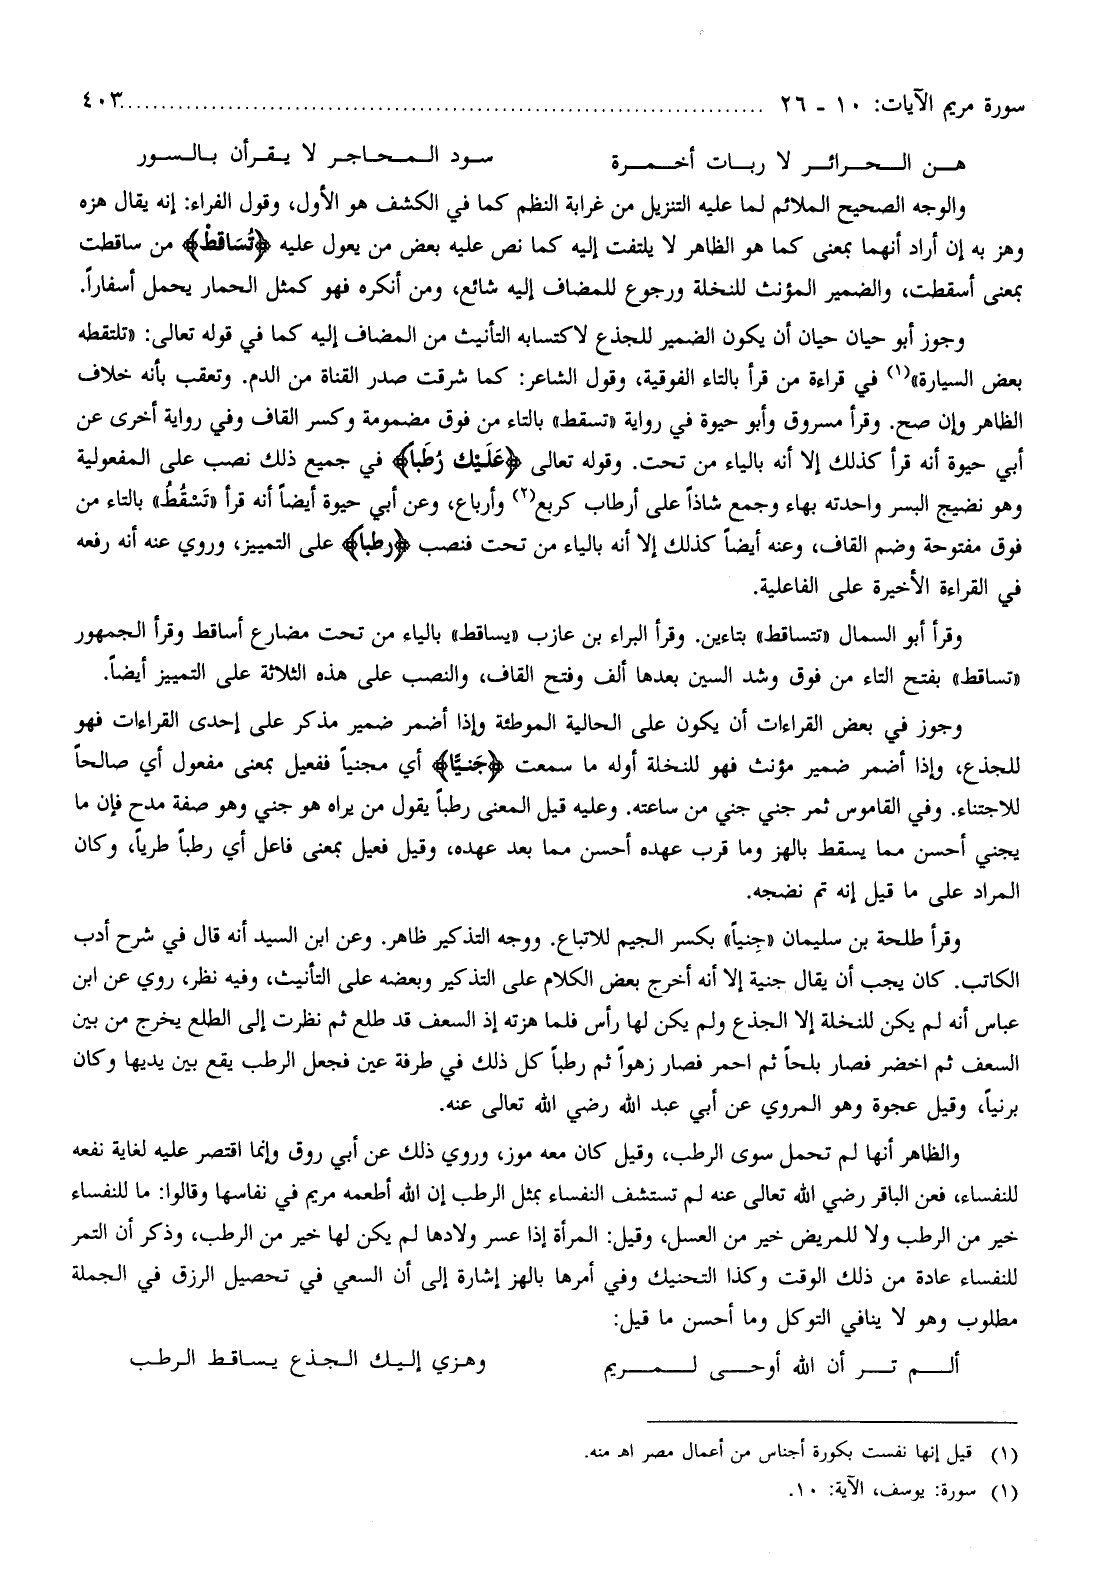 سورة مريم الآيات: ١٠ - ٢٦ ........................................................................ ٤٠٣
هـن الـحـرائـر لا ربـات أخـمـرة سـود الـمـحـاجـر لا يـقـرأن بـالـسـور
والوجه الصحيح الملائم لما عليه التنزيل من غرابة النظم كما في الكشف هو الأول، وقول الفراء: إنه يقال هزه
وهز به إن أراد أنهما بمعنى كما هو الظاهر لا يلتفت إليه كما نص عليه بعض من يعول عليه ﴿تُسَاقطْ﴾ من ساقطت
بمعنى أسقطت، والضمير المؤنث للنخلة ورجوع للمضاف إليه شائع، ومن أنكره فهو كمثل الحمار يحمل أسفاراً.
وجوز أبو حيان حيان أن يكون الضمير للجذع لاكتسابه التأنيث من المضاف إليه كما في قوله تعالى: «تلتقطه
بعض السيارة»(١) في قراءة من قرأ بالتاء الفوقية، وقول الشاعر: كما شرقت صدر القناة من الدم. وتعقب بأنه خلاف
الظاهر وإن صح. وقرأ مسروق وأبو حيوة في رواية «تسقط» بالتاء من فوق مضمومة وكسر القاف وفي رواية أخرى عن
أبي حيوة أنه قرأ كذلك إلا أنه بالياء من تحت. وقوله تعالى ﴿عَلَيْك رُطَباً﴾ في جميع ذلك نصب على المفعولية
وهو نضيج البسر واحدته بهاء وجمع شاذاً على أرطاب كربع(٢) وأرباع، وعن أبي حيوة أيضاً أنه قرأ «تَسْقُطُ» بالتاء من
فوق مفتوحة وضم القاف، وعنه أيضاً كذلك إلا أنه بالياء من تحت فنصب ﴿رطباً﴾ على التمييز، وروي عنه أنه رفعه
في القراءة الأخيرة على الفاعلية.
وقرأ أبو السمال «تتساقط» بتاءين. وقرأ البراء بن عازب «يساقط» بالياء من تحت مضارع أساقط وقرأ الجمهور
«تساقط» بفتح التاء من فوق وشد السين بعدها ألف وفتح القاف، والنصب على هذه الثلاثة على التمييز أيضاً.
وجوز في بعض القراءات أن يكون على الحالية الموطئة وإذا أضمر ضمير مذكر على إحدى القراءات فهو
للجذع، وإذا أضمر ضمير مؤنث فهو للنخلة أوله ما سمعت ﴿جَنيًّا﴾ أي مجنياً ففعيل بمعنى مفعول أي صالحاً
للاجتناء. وفي القاموس ثمر جني جني من ساعته. وعليه قيل المعنى رطباً يقول من يراه هو جني وهو صفة مدح فإن ما
يجني أحسن مما يسقط بالهز وما قرب عهده أحسن مما بعد عهده، وقيل فعيل بمعنى فاعل أي رطباً طرياً، وكان
المراد على ما قيل إنه تم نضجه.
وقرأ طلحة بن سليمان «جِنياً» بكسر الجيم للاتباع. ووجه التذكير ظاهر. وعن ابن السيد أنه قال في شرح أدب
الكاتب. كان يجب أن يقال جنية إلا أنه أخرج بعض الكلام على التذكير وبعضه على التأنيث، وفيه نظر، روي عن ابن
عباس أنه لم يكن للنخلة إلا الجذع ولم يكن لها رأس فلما هزته إذ السعف قد طلع ثم نظرت إلى الطلع يخرج من بين
السعف ثم اخضر فصار بلحاً ثم احمر فصار زهواً ثم رطباً كل ذلك في طرفة عين فجعل الرطب يقع بين يديها وكان
برنياً، وقيل عجوة وهو المروي عن أبي عبد الله رضي الله تعالى عنه.
والظاهر أنها لم تحمل سوى الرطب، وقيل كان معه موز، وروي ذلك عن أبي روق وإنما اقتصر عليه لغاية نفعه
للنفساء، فعن الباقر رضي الله تعالى عنه لم تستشف النفساء بمثل الرطب إن الله أطعمه مريم في نفاسها وقالوا: ما للنفساء
خير من الرطب ولا للمريض خير من العسل، وقيل: المرأة إذا عسر ولادها لم يكن لها خير من الرطب، وذكر أن التمر
للنفساء عادة من ذلك الوقت وكذا التحنيك وفي أمرها بالهز إشارة إلى أن السعي في تحصيل الرزق في الجملة
مطلوب وهو لا ينافي التوكل وما أحسن ما قيل:
ألـم تـر أن الله أوحـى لـمـريم وهـزي إليـك الـجذع يـساقـط الـرطب
(١) قيل إنها نفست بكورة أجناس من أعمال مصر اهـ منه.
(١) سورة: يوسف، الآية: ١٠.